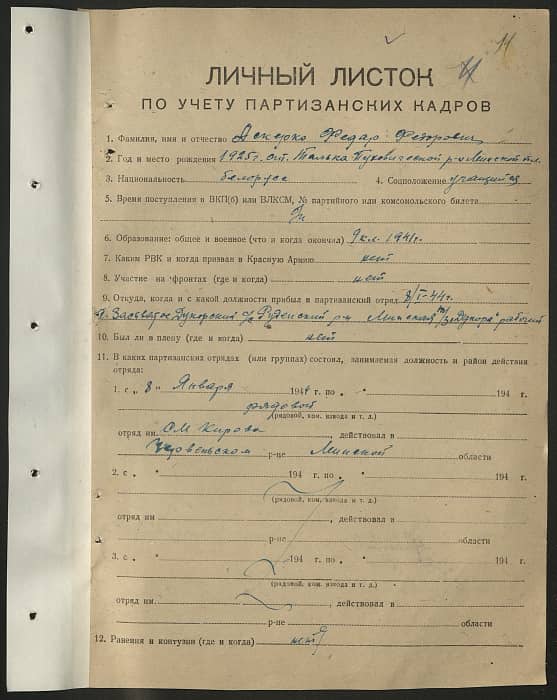 11
ЛИЧНЫЙ ЛИСТОК
ПО УЧЕТУ ПАРТИЗАНСКИХ КАДРОВ
1. Фамилия, имя и отчество Аскерко Федар Федорович
2. Год и место рождения 1925г. ст. Талька Пуховичской р-н Минской обл.
3. Национальность белорусс 4. Соцположение учащийся
5. Время поступления в ВКП(б) или ВЛКСМ, № партийного или комсомольского билета
б/п
6. Образование: общее и военное (что и когда окончил) 9 кл. 1941г.
7. Каким РВК и когда призван в Красную Армию нет
8. Участие на фронтах (где и когда) нет
9. Откуда, когда и с какой должности прибыл в партизанский отряд 8/I-44г.
Дукорский Руденский р-н Минская рабочий
10. Был ли в плену (где и когда) нет
11. В каких партизанских отрядах (или группах) состоял, занимаемая должность и район действия
отряда:
1. с „ 8 " Января 1944 г. по „ " 194 г.
рядовой
(рядовой, ком. взвода и т. д.)
отряд им. СМ Кирова действовал в
Червеньском р-не Минской области
2. с „ " 194 г. по „ " 194 г.
(рядовой, ком. взвода и т. д.)
отряд им , действовал в
р-не области
3. с „ " 194 г. по „ " 194 г.
(рядовой, ком. взвода и т. д.)
отряд им. , действовал в
р-не области
12. Ранения и контузии (где и когда) нет